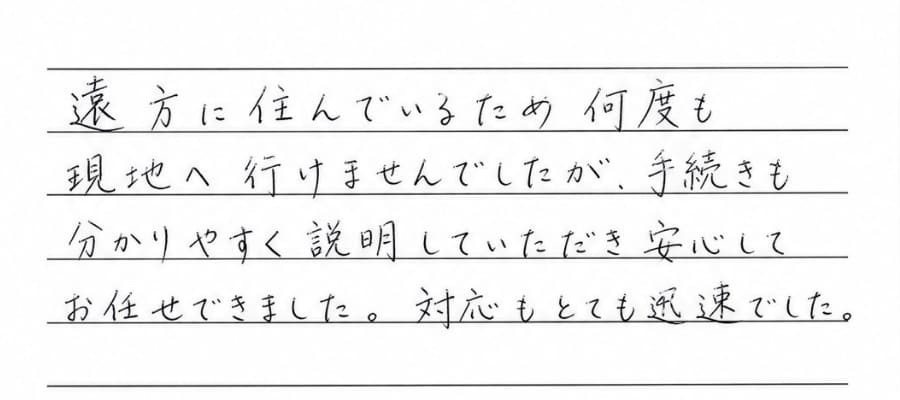 遠方に住んでいるため何度も
現地へ行けませんでしたが、手続きも
分かりやすく説明していただき安心して
お任せできました。対応もとても迅速でした。